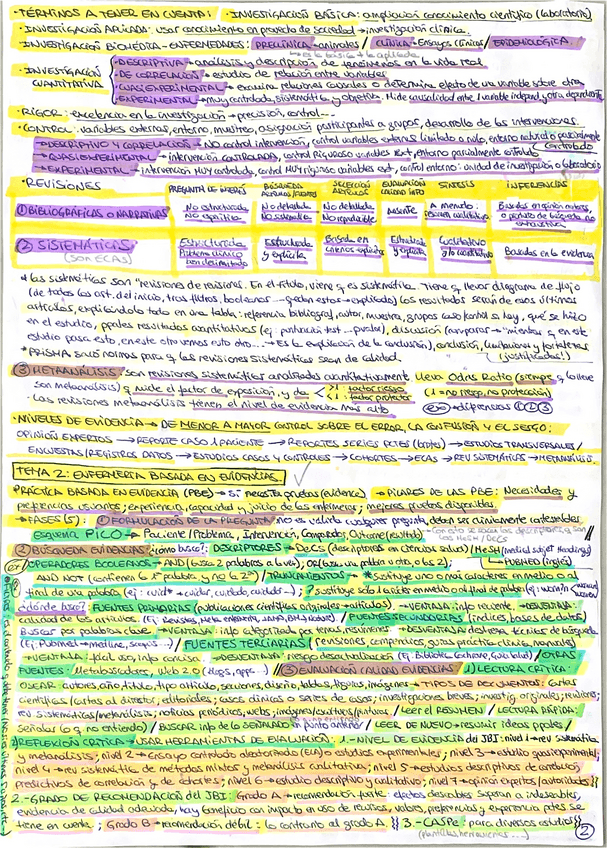 · TÉRMINOS A TENER EN CUENTA: · INVESTIGACIÓN BÁSICA: ampliación conocimiento científico (laboratorio)
· INVESTIGACIÓN APLICADA: usar conocimiento en provecho de sociedad → investigación clínica.
· INVESTIGACIÓN BIOMÉDICA - ENFERMEDADES: PRECLÍNICA → animales / CLÍNICA → Ensayos clínicos / EPIDEMIOLÓGICA.
· INVESTIGACIÓN CUANTITATIVA
DESCRIPTIVA → análisis y descripción de fenómenos en la vida real
DE CORRELACIÓN → estudio de relación entre variables
CUASIEXPERIMENTAL → examina relaciones causales o determina efecto de una variable sobre otra
EXPERIMENTAL → muy controlada, sistemática y objetiva. Mide causalidad entre 1 variable independ. y otra dependiente
· RIGOR: excelencia en la investigación → precisión, control...
· CONTROL: variables externas, entorno, muestreo, asignación participantes a grupos, desarrollo de las intervenciones.
* DESCRIPTIVO Y CORRELACIÓN → NO control intervención, control variables externas limitado o nulo, entorno natural o parcialmente controlado
* CUASIEXPERIMENTAL → intervención CONTROLADA, control riguroso variables ext, entorno parcialmente controlado
* EXPERIMENTAL → intervención muy controlada, control MUY riguroso variables ext, control entorno: unidad de investigación o laboratorio
· REVISIONES
PREGUNTA DE INTERÉS BÚSQUEDA SELECCIÓN ARTÍCULOS EVALUACIÓN CALIDAD SÍNTESIS INFERENCIAS
① BIBLIOGRÁFICAS O NARRATIVAS No estructurada No específica No detallada No sistemática No detallada No reproducible Ausente A menudo: resumen cualitativo
② SISTEMÁTICAS (SON ECAS) Estructurada Problema clínico bien delimitado Estructurada y explícita Basada en criterios explícitos Estructurada y explícita Cualitativo y/o cuantitativo Basadas en la evidencia
* Las sistemáticas son "revisiones de revisiones. En el título, viene q es sistemática. Tiene q llevar diagrama de flujo
(de todos los art. del inicio, tras filtros, booleanos → quedan estos → explicado) Los resultados serían de esos últimos
artículos, explicándolo todo en una tabla: referencia bibliográf, autor, muestra, grupos caso/control si hay, qué se hizo
en el estudio, ppales resultados cuantitativos (ej: puntuación test...), discusión (comparar → "mientras q en este
estudio pasa esto, en este otro vemos esto otro... → Es la explicación de la conclusión), conclusión, limitaciones y fortalezas
(justificadas!)
* PRISMA son normas para q las revisiones sistemáticas sean de calidad.
③ METAANÁLISIS: son revisiones sistemáticas analizadas cuantitativamente. Lleva Odds Ratio (siempre q lo lleve
son metaanálisis) q mide el factor de exposición, y da < >1: factor riesgo <1: factor protector (1 = no riesgo, no protección)
· Las revisiones metaanálisis tienen el nivel de evidencia más alto
· NIVELES DE EVIDENCIA → DE MENOR A MAYOR CONTROL SOBRE EL ERROR, LA CONFUSIÓN Y EL SESGO:
OPINIÓN EXPERTOS → REPORTE CASO 1 PACIENTE → REPORTES SERIES PCTES (brotes) → ESTUDIOS TRANSVERSALES /
ENCUESTAS / REGISTROS DATOS → ESTUDIOS CASOS Y CONTROLES → COHORTES → ECAS → REV SISTEMÁTICAS → METAANÁLISIS.
TEMA 2: ENFERMERÍA BASADA EN EVIDENCIAS.
PRÁCTICA BASADA EN EVIDENCIA (PBE) → Sí necesita pruebas (evidence) → PILARES DE LAS PBE: Necesidades y
preferencias usuarios; experiencia, capacidad y juicio de las enfermeras; mejores pruebas disponibles
→ FASES (5): ① FORMULACIÓN DE LA PREGUNTA: no es válida cualquier pregunta, deben ser clínicamente contestables
esquema PICO → Paciente/Problema, Intervención, Comparador, Outcome (resultado)
② BÚSQUEDA EVIDENCIAS: ¿cómo busco?: DESCRIPTORES → DeCS (descriptores en ciencias salud) / MeSH (medical subject headings)
↳ PUBMED (inglés)
OPERADORES BOOLEANOS → AND (busca 2 palabras a la vez), OR (busca una palabra u otra, o las 2),
AND NOT (contienen la 1ª palabra, y no la 2ª) / TRUNCAMIENTOS → * sustituye uno o más caracteres en medio o al
final de una palabra (ej: cuid* → cuidar, cuidado, cuidado...) ? sustituye solo 1 carácter en medio o al final de palabra (ej: wom?n → woman/women)
¿dónde busco? FUENTES PRIMARIAS (publicaciones científicas originales → artículos). → VENTAJA: info reciente. → DESVENTAJA:
calidad de los artículos. / FUENTES SECUNDARIAS (índices, bases de datos)
Buscar por palabras clave. → VENTAJA: info categorizada por temas, resúmenes. → DESVENTAJA: destreza técnicas de búsqueda
(Ej. Pubmed → medline, scopus...) / FUENTES TERCIARIAS (revisiones compendios, guías práctica clínica, manuales)
→ VENTAJA: fácil uso, info concisa. → DESVENTAJA: riesgo desactualización (Ej. Biblioteca Cochrane, guías salud) / OTRAS
FUENTES: Metabuscadores, Web 2.0 (blogs, apps...) ③ EVALUACIÓN CALIDAD EVIDENCIAS: 1) LECTURA CRÍTICA:
OJEAR: autores, año, título, tipo artículo, secciones, diseño, tablas, figuras, imágenes → TIPOS DE DOCUMENTOS: cartas
científicas / cartas al director, editoriales; casos clínicos o series de casos; investigaciones breves; investig. originales; revisiones;
rev sistemáticas / metanálisis, noticias periódicos, webs, imágenes / cultura, pintura / Leer el RESUMEN / LECTURA RÁPIDA:
señalar lo q no entiendo / BUSCAR info de lo SEÑALADO / LEER DE NUEVO → resumir ideas ppales /
2) REFLEXIÓN CRÍTICA → USAR HERRAMIENTAS DE EVALUACIÓN: 1.- NIVEL DE EVIDENCIA del JBI: nivel 1 → rev sistemática
y metanálisis; nivel 2 → Ensayo controlado aleatorizado (ECA) o estudios experimentales; nivel 3 → estudio quasiexperimental;
nivel 4 → rev sistemática de métodos mixtos y metanálisis cualitativa; nivel 5 → estudios descriptivos de correlación,
predictivos de correlación y de cohortes; nivel 6 → estudio descriptivo y cualitativo; nivel 7 → opinión expertos / autoridades
2.- GRADO DE RECOMENDACIÓN del JBI: Grado A → recomendación fuerte: efectos deseables superan a indeseables,
evidencia de calidad adecuada, hay beneficio con impacto en uso de recursos, valores, preferencias y experiencia pctes se
tiene en cuenta; Grado B → recomendación débil: lo contrario al grado A. 3.- CASPe: para diversos estudios
(plantillas, herramientas...) ②